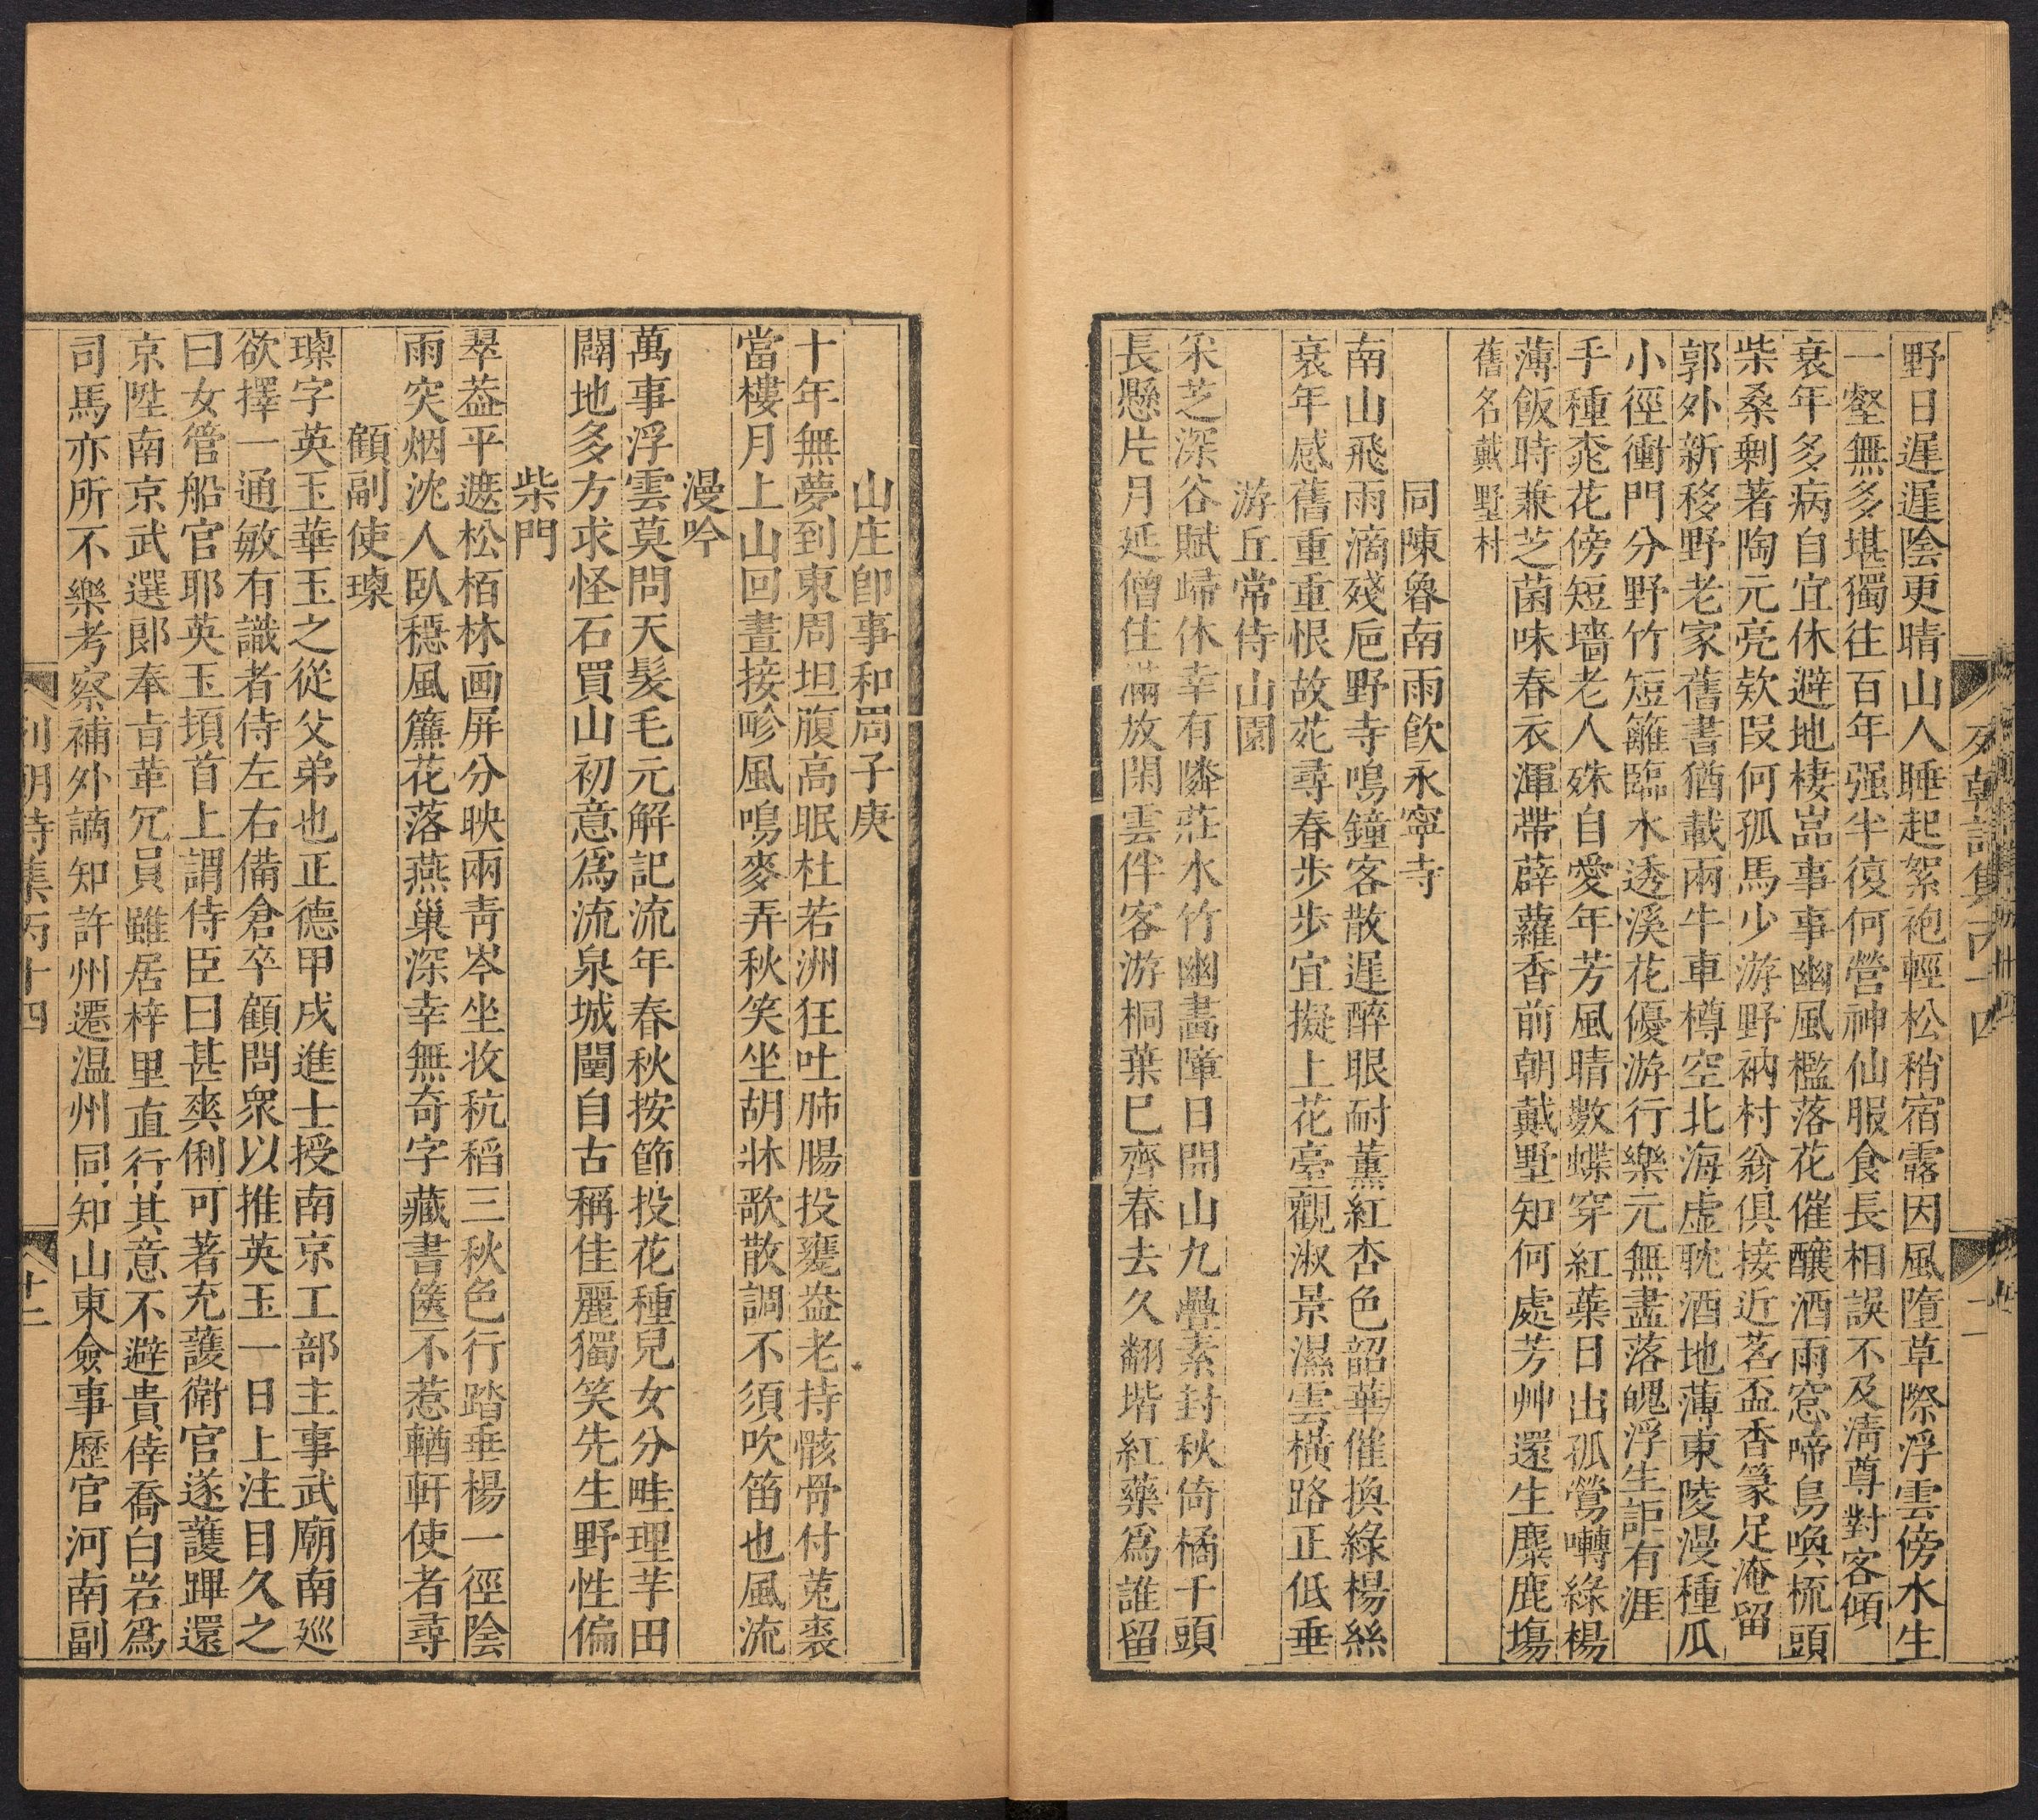 野日遲遲陰更晴山人睡起絮袍輕松稍宿露因風墮草際浮雲傍水生
一壑無多堪獨往百年强半復何營神仙服食長相誤不及淸尊對客傾
衰年多病自宜休避地棲嵓事事幽風檻落花催釀酒雨窓啼鳥喚梳頭
柴桑剩著陶元亮欵段何孤馬少游野衲村翁俱接近茗盃香篆足淹留
郭外新移野老家舊書猶載兩牛車樽空北海虛耽酒地薄東陵漫種瓜
小徑衝門分野竹短籬臨水透溪花優游行樂元無盡落魄浮生詎有涯
手種桃花傍短墻老人殊自愛年芳風晴數蝶穿紅蘂日出孤鶯囀綠楊
薄飯時兼芝菌味春衣渾帶薜蘿香前朝戴墅知何處芳艸還生麋鹿塲
舊名戴墅村
同陳魯南雨飮永寧寺
南山飛雨滴殘巵野寺鳴鐘客散遲醉眼耐薰紅杏色韶華催換綠楊絲
衰年感舊重重恨故苑尋春步步宜擬上花臺觀淑景濕雲橫路正低垂
游丘常侍山園
采芝深谷賦歸休幸有隣莊水竹幽畵障日開山九疊素封秋倚橘千頭
長懸片月延僧住滿放閑雲伴客游桐葉巳齊春去久翻堦紅藥爲誰留
列朝詩集丙十四
山庄卽事和周子庚
十年無夢到東周坦腹高眠杜若洲狂吐肺腸投甕盎老持骸骨付菟裘
當樓月上山回晝接畛風鳴麥弄秋笑坐胡牀歌散調不須吹笛也風流
漫吟
萬事浮雲莫問天髮毛元解記流年春秋按節投花種兒女分畦理芋田
闢地多方求怪石買山初意爲流泉城闉自古稱佳麗獨笑先生野性偏
柴門
翠葢平遮松栢林画屛分映兩靑岑坐收秔稻三秋色行踏垂楊一徑陰
雨突烟沈人臥穩風簾花落燕巢深幸無奇字藏書篋不惹輶軒使者尋
顧副使璨
璨字英玉華玉之從父弟也正德甲戌進士授南京工部主事武廟南巡
欲擇一通敏有識者侍左右備倉卒顧問衆以推英玉一日上注目久之
曰女管船官耶英玉頓首上謂侍臣曰甚爽俐可著充護衛官遂護蹕還
京陞南京武選郎奉旨革冗員雖居梓里直行其意不避貴倖喬白岩爲
司馬亦所不樂考察補外謫知許州遷温州同知山東僉事歷官河南副
列朝詩集丙十四
十二